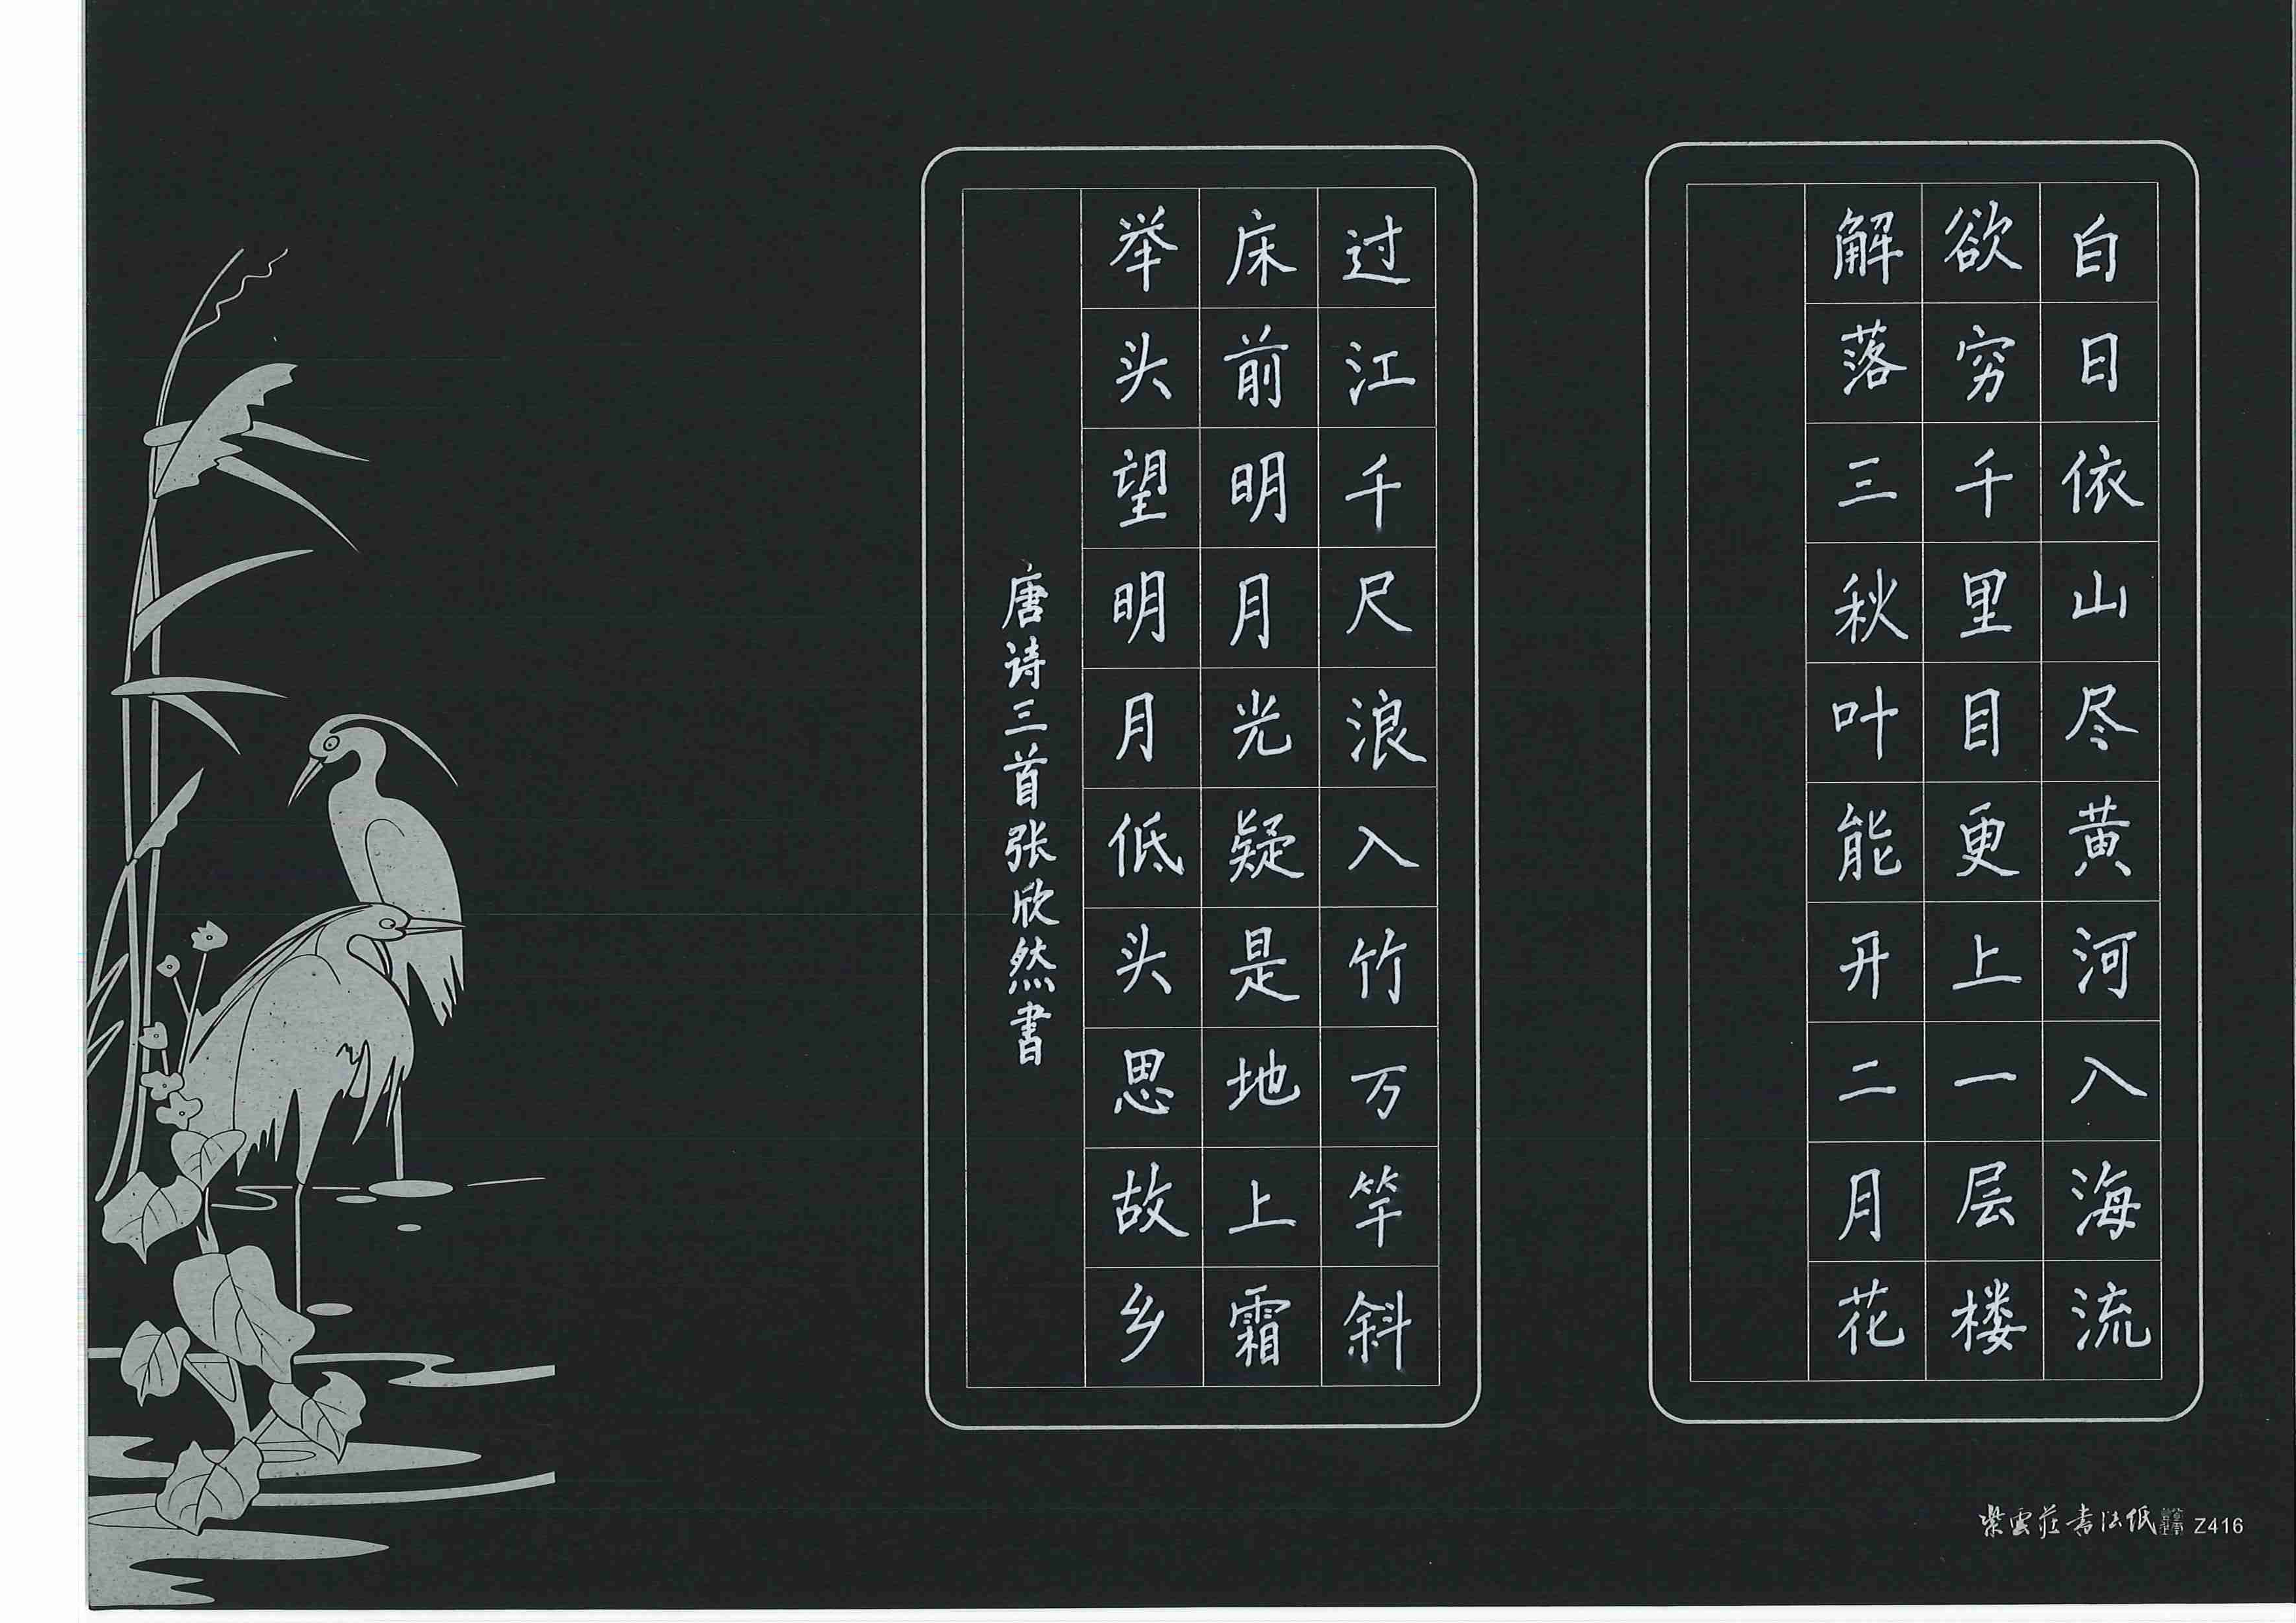 白日依山尽黄河入海流
欲穷千里目更上一层楼
解落三秋叶能开二月花
过江千尺浪入竹万竿斜
床前明月光疑是地上霜
举头望明月低头思故乡
唐诗三首张欣然书
紫雲莊书法纸
Z416